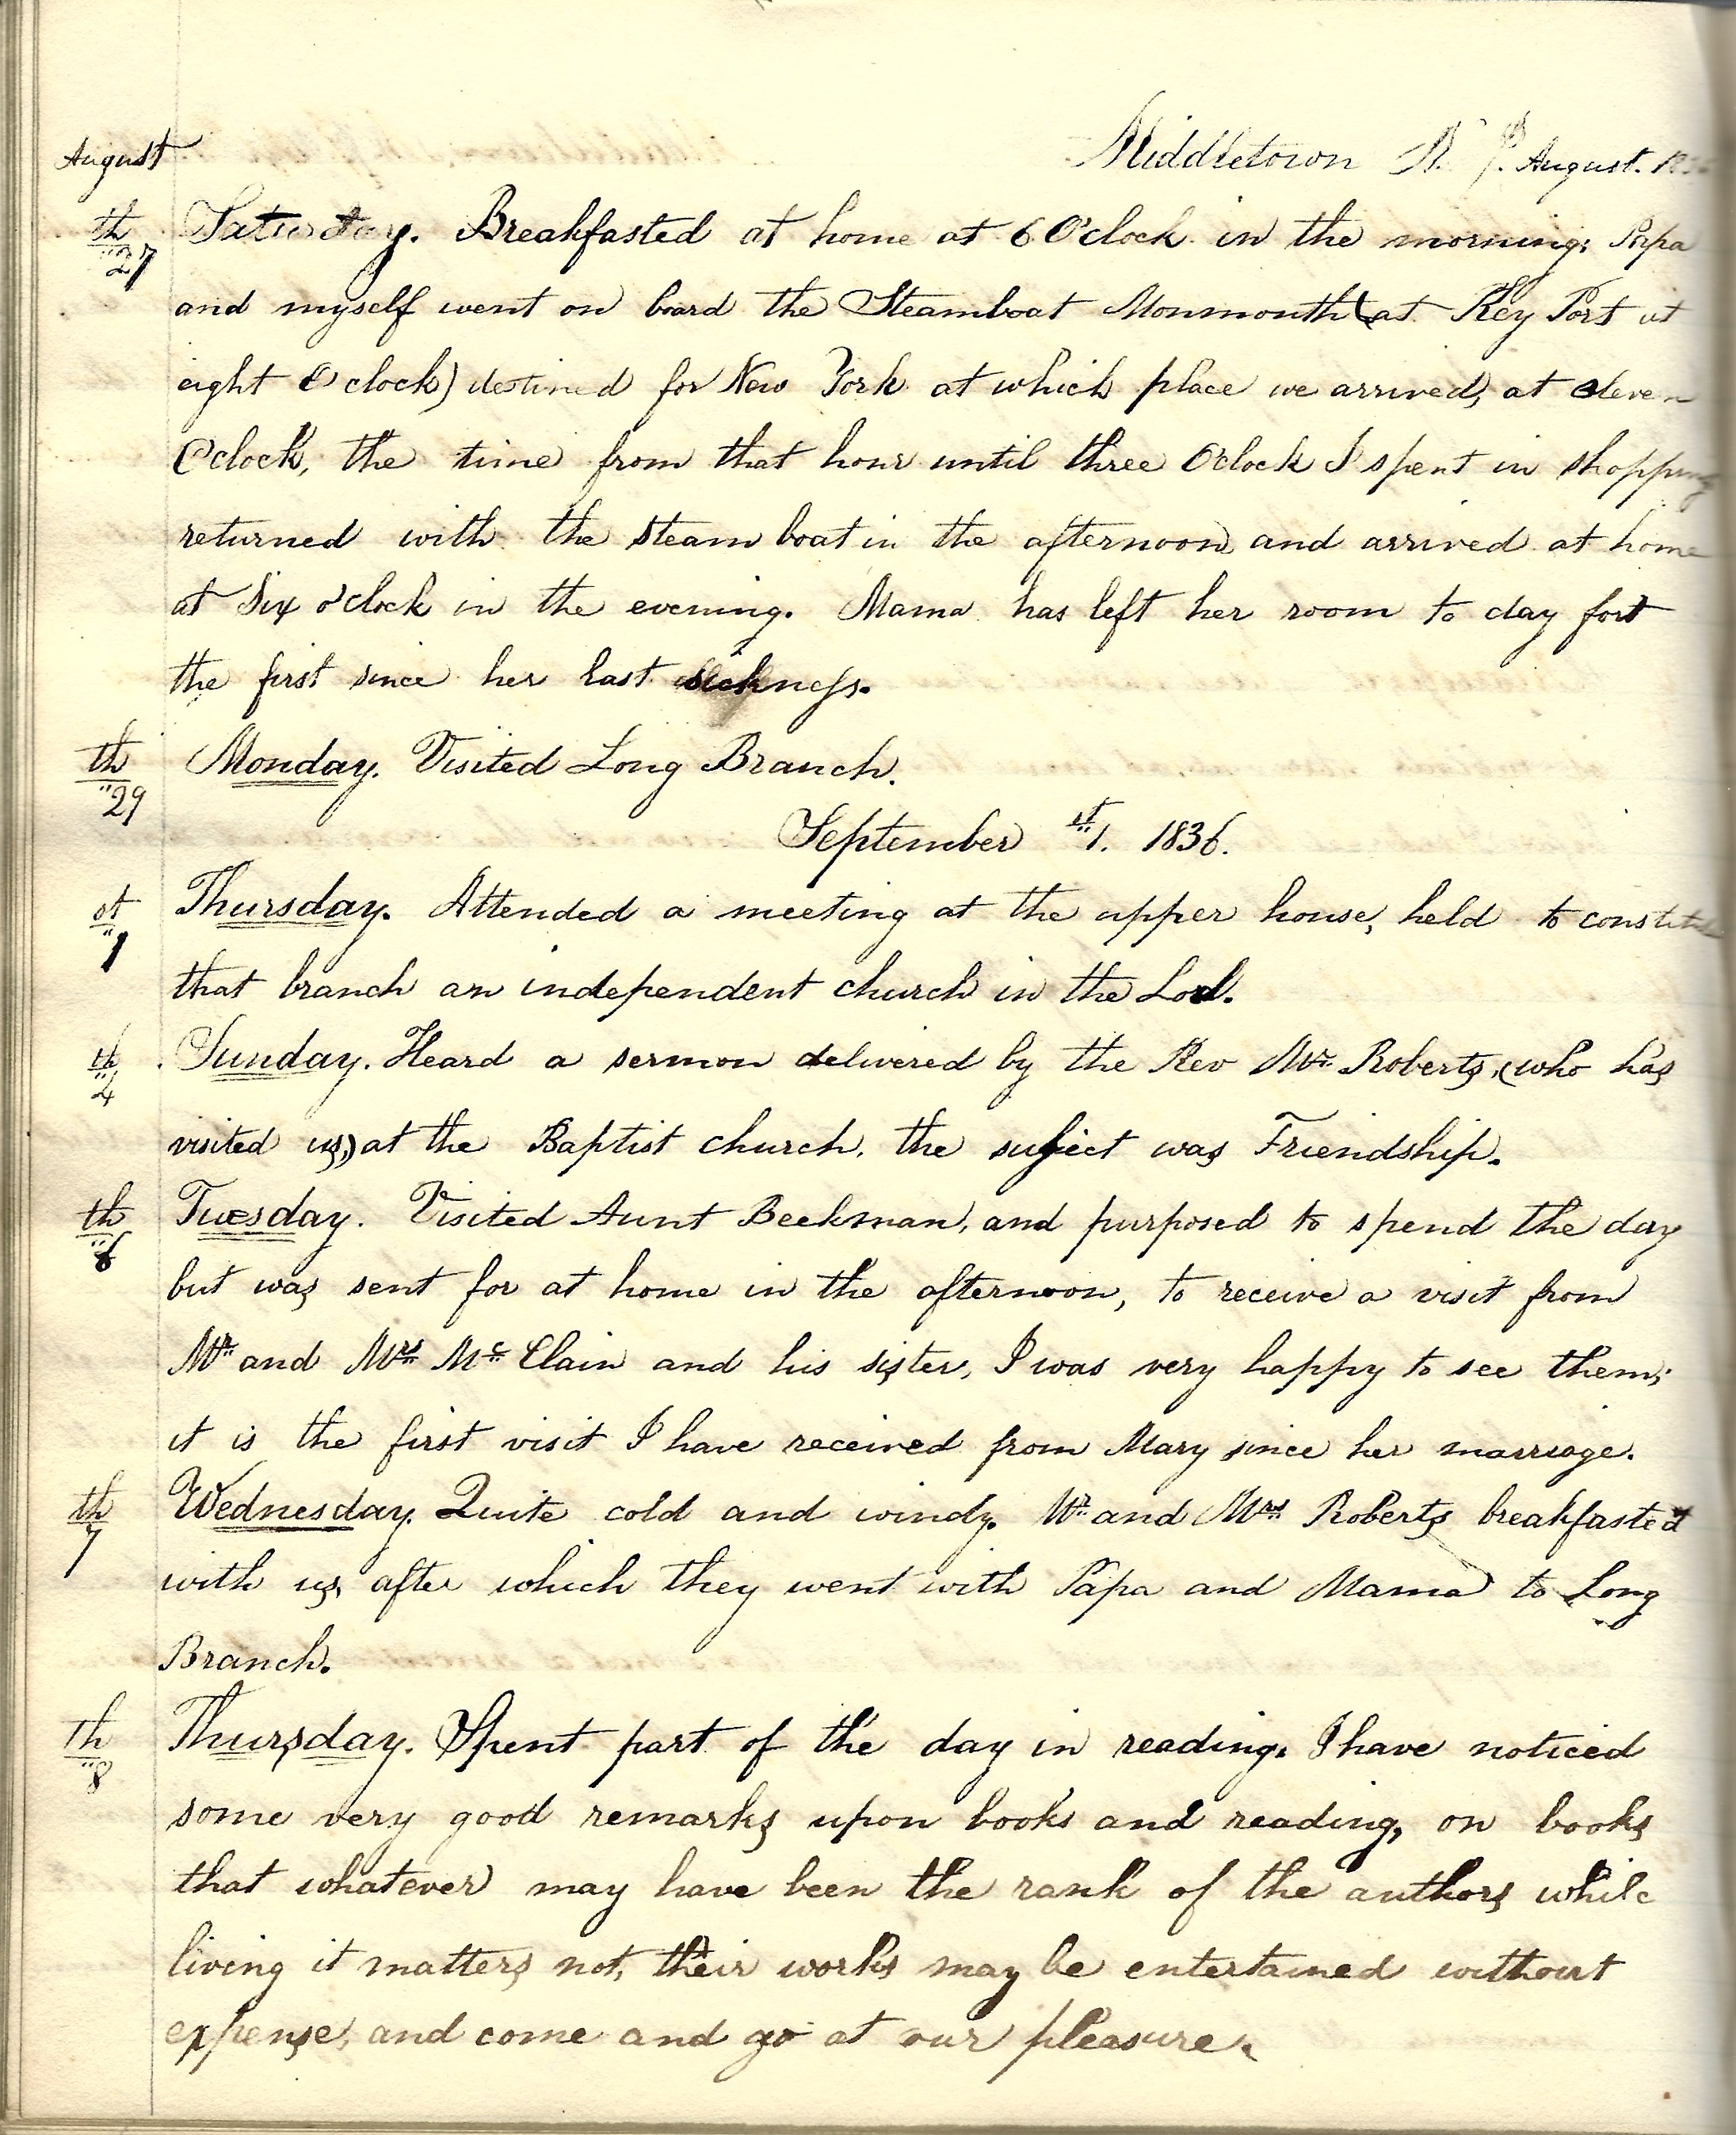 August
Middletown N. J. August. 183
th 27 Saturday. Breakfasted at home at 6 O'clock in the morning; Papa
and myself went on board the Steamboat Monmouth (at Key Port at
eight O'clock) destined for New York at which place we arrived, at eleven
O'clock, the time from that hour until three O'clock I spent in shopping
returned with the steam boat in the afternoon and arrived at home
at Six o'clock in the evening. Mama has left her room to day fort
the first since her last sickness.
th 29 Monday. Visited Long Branch.
September st 1. 1836.
st 1 Thursday. Attended a meeting at the upper house, held to constitute
that branch an independent church in the Lord.
th 4 Sunday. Heard a sermon delivered by the Rev Mr Roberts, (who has
visited us,) at the Baptist church. the subject was Friendship.
th 6 Tuesday. Visited Aunt Beekman, and purposed to spend the day
but was sent for at home in the afternoon, to receive a visit from
Mr and Mrs Mc Clain and his sister, I was very happy to see them;
it is the first visit I have received from Mary since her marriage.
th 7 Wednesday. Quite cold and windy. Mr and Mrs Roberts breakfasted
with us, after which they went with Papa and Mama to Long
Branch.
th 8 Thursday. Spent part of the day in reading. I have noticed
some very good remarks upon books and reading, on books
that whatever may have been the rank of the authors while
living it matters not, their works may be entertained without
expense, and come and go at our pleasure.